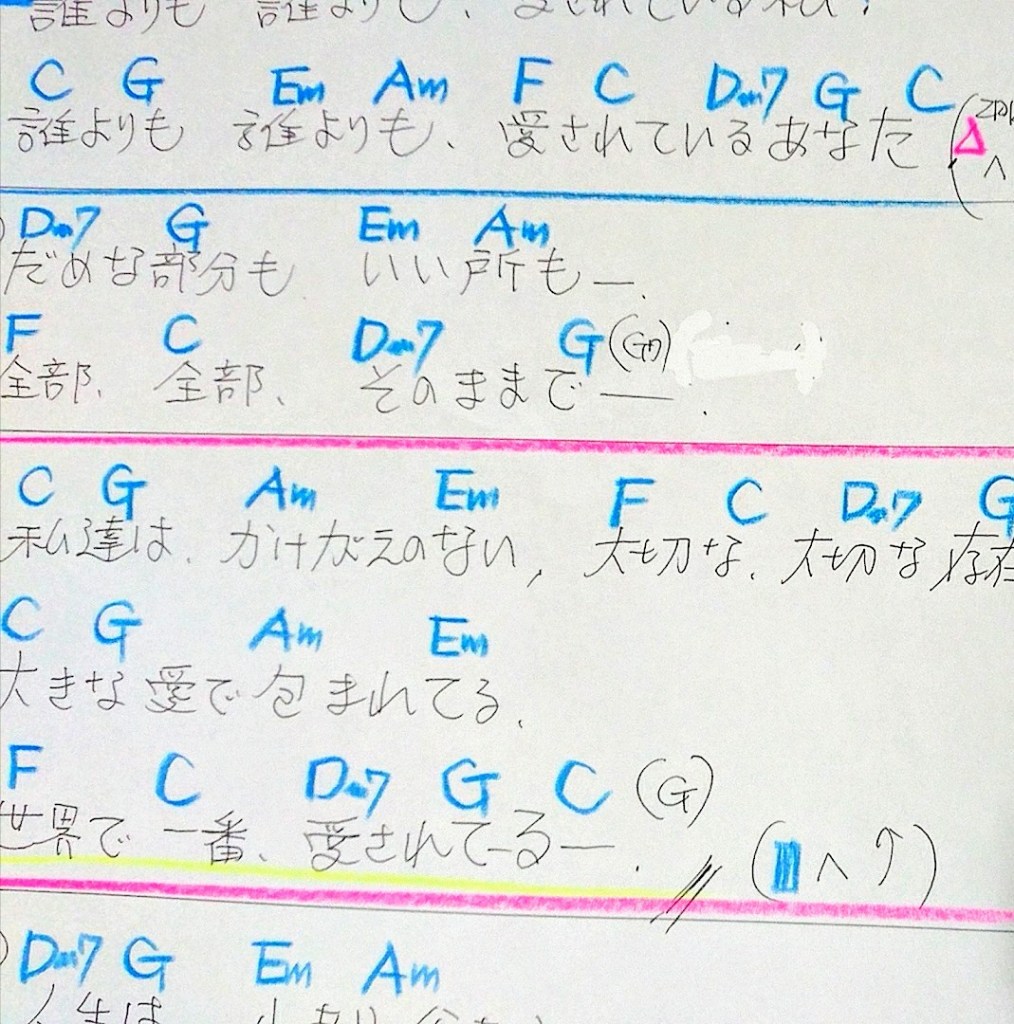 誰よりも 誰よりも、愛されている私!
C G Em Am F C Dm7 G C
誰よりも 誰よりも、愛されているあなた (Δへ
Dm7 G Em Am
だめな部分も いい所もー.
F C Dm7 G (G7)
全部、全部、そのままでー.
C G Am Em F C Dm7 G
私達は、かけがえのない, 大切な、大切な存在
C G Am Em
大きな愛で包まれてる.
F C Dm7 G C (G)
世界で一番、愛されてーるー.
(Ⅲへ↑)
Dm7 G Em Am
人生は